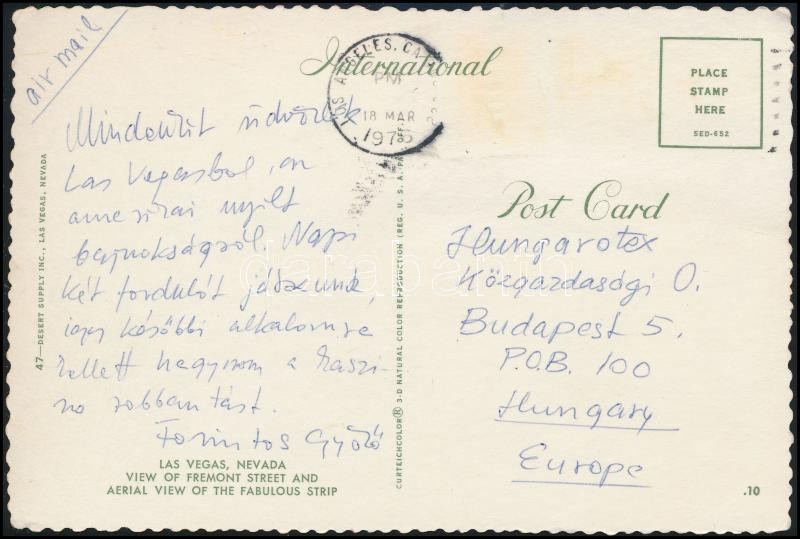 air mail
International
LOS ANGELES, CA
PM
18 MAR
1975
PLACE
STAMP
HERE
SED-652
Mindenkit üdvözlök
Las Vegasból, az
amerikai nyílt
bajnokságról. Napi
két fordulót játszunk,
így későbbi alkalomra
kellett hagynom a kaszi-
nó robbantást.
Forintos Győző
Post Card
Hungarotex
Közgazdasági O.
Budapest 5.
P.O.B. 100
Hungary
Europe
47—DESERT SUPPLY INC., LAS VEGAS, NEVADA
CURTEICHCOLOR® 3-D NATURAL COLOR REPRODUCTION (REG. U. S. A. PAT. OFF.)
LAS VEGAS, NEVADA
VIEW OF FREMONT STREET AND
AERIAL VIEW OF THE FABULOUS STRIP
.10
darabanth